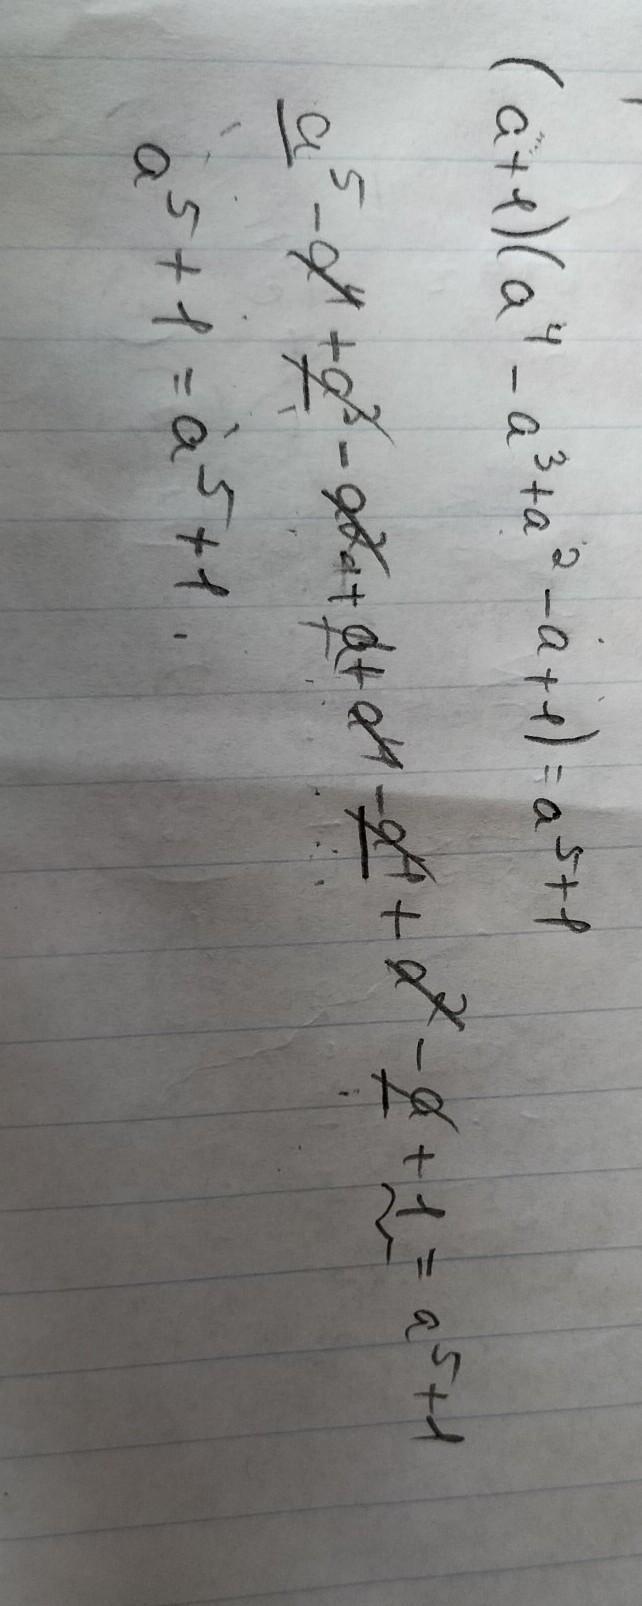 (a+1)(a⁴ - a³ + a² - a + 1) = a⁵ + 1
a⁵ - a⁴ + a³ - a² + a + a⁴ - a³ + a² - a + 1 = a⁵ + 1
a⁵ + 1 = a⁵ + 1.